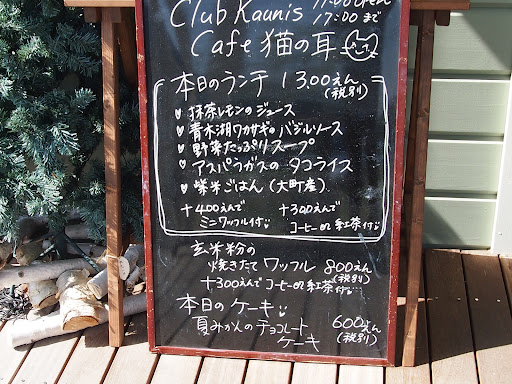 Club Kaunis 11:00 Open
17:00まで
Cafe 猫の耳
本日のランチ 1300えん
(税別)
抹茶レモンのジュース
青木湖ワカサギのバジルソース
野菜たっぷりスープ
アスパラガスのタコライス
紫米ごはん(大町産)
+400えんで +300えんで
ミニワッフル付 コーヒーor紅茶付
玄米粉の
焼きたてワッフル 800えん
(税別)
+300えんでコーヒーor紅茶付
本日のケーキ
夏みかんのチョコレート 600えん
ケーキ (税別)